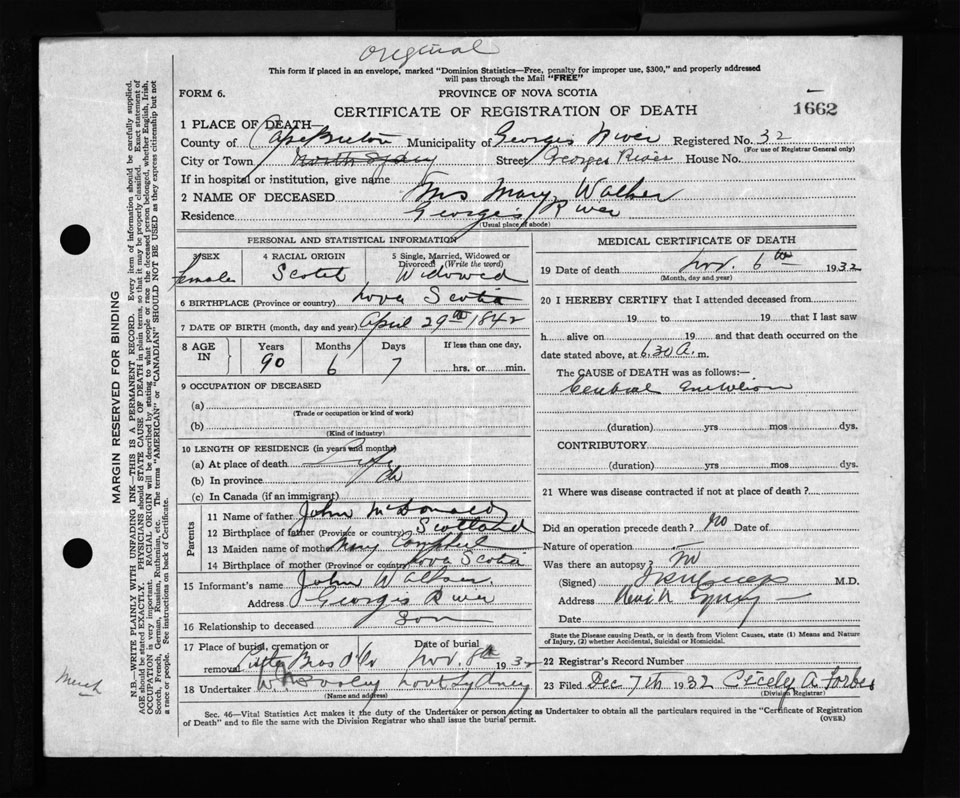 original
This form if placed in an envelope, marked "Dominion Statistics—Free, penalty for improper use, $300," and properly addressed
will pass through the Mail "FREE"
FORM 6.
PROVINCE OF NOVA SCOTIA
CERTIFICATE OF REGISTRATION OF DEATH
1662
1 PLACE OF DEATH—
County of Cape Breton Municipality of Georges River Registered No. 32
(For use of Registrar General only)
City or Town North Sydney Street Georges River House No.
If in hospital or institution, give name
2 NAME OF DECEASED Mrs Mary Walker
Residence Georges River
(Usual place of abode)
PERSONAL AND STATISTICAL INFORMATION
3 SEX female
4 RACIAL ORIGIN Scotch
5 Single, Married, Widowed or Divorced (Write the word) Widowed
6 BIRTHPLACE (Province or country) Nova Scotia
7 DATE OF BIRTH (month, day and year) April 29th 1842
8 AGE IN Years 90 Months 6 Days 7 If less than one day, hrs. or min.
9 OCCUPATION OF DECEASED
(a)
(Trade or occupation or kind of work)
(b)
(Kind of industry)
10 LENGTH OF RESIDENCE (in years and months)
(a) At place of death Life
(b) In province do
(c) In Canada (if an immigrant)
Parents
11 Name of father John McDonald
12 Birthplace of father (Province or country) Scotland
13 Maiden name of mother Mary Campbell
14 Birthplace of mother (Province or country) Nova Scotia
15 Informant's name John Walker
Address Georges River
16 Relationship to deceased Son
17 Place of burial, cremation or removal Little Bras d'Or Date of burial Nov. 8th 1932
18 Undertaker
(Name and address)
MEDICAL CERTIFICATE OF DEATH
19 Date of death Nov. 6th 1932
(Month, day and year)
20 I HEREBY CERTIFY that I attended deceased from
19 to 19 that I last saw
h alive on 19 and that death occurred on the
date stated above, at 6.30 A. m.
The CAUSE of DEATH was as follows:—
Cerebral Embolism
(duration) yrs mos dys.
CONTRIBUTORY
(duration) yrs mos dys.
21 Where was disease contracted if not at place of death?
Did an operation precede death? No Date of
Nature of operation
Was there an autopsy? No
(Signed) M.D.
Address North Sydney
Date
State the Disease causing Death, or in death from Violent Causes, state (1) Means and Nature
of Injury, (2) whether Accidental, Suicidal or Homicidal.
22 Registrar's Record Number
23 Filed Dec 7th 1932 Cecely A. Forbes
(Division Registrar)
Sec. 46—Vital Statistics Act makes it the duty of the Undertaker or person acting as Undertaker to obtain all the particulars required in the "Certificate of Registration
of Death" and to file the same with the Division Registrar who shall issue the burial permit.
(OVER)
MARGIN RESERVED FOR BINDING
N.B.—WRITE PLAINLY WITH UNFADING INK—THIS IS A PERMANENT RECORD. Every item of information should be carefully supplied.
AGE should be stated EXACTLY. PHYSICIANS should STATE CAUSE OF DEATH in plain terms, so that it may be properly classified. Exact statement of
OCCUPATION is very important. RACIAL ORIGIN will be described by stating to what people or race the deceased person belonged, whether English, Irish,
Scotch, French, German, Russian, Ruthenian, etc. The terms "AMERICAN" or "CANADIAN" SHOULD NOT BE USED as they express citizenship but not
a race or people. See instructions on back of Certificate.